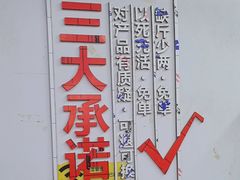 三大承诺
对产品有质疑·可退可换
以死充活·免单
缺斤少两·免单